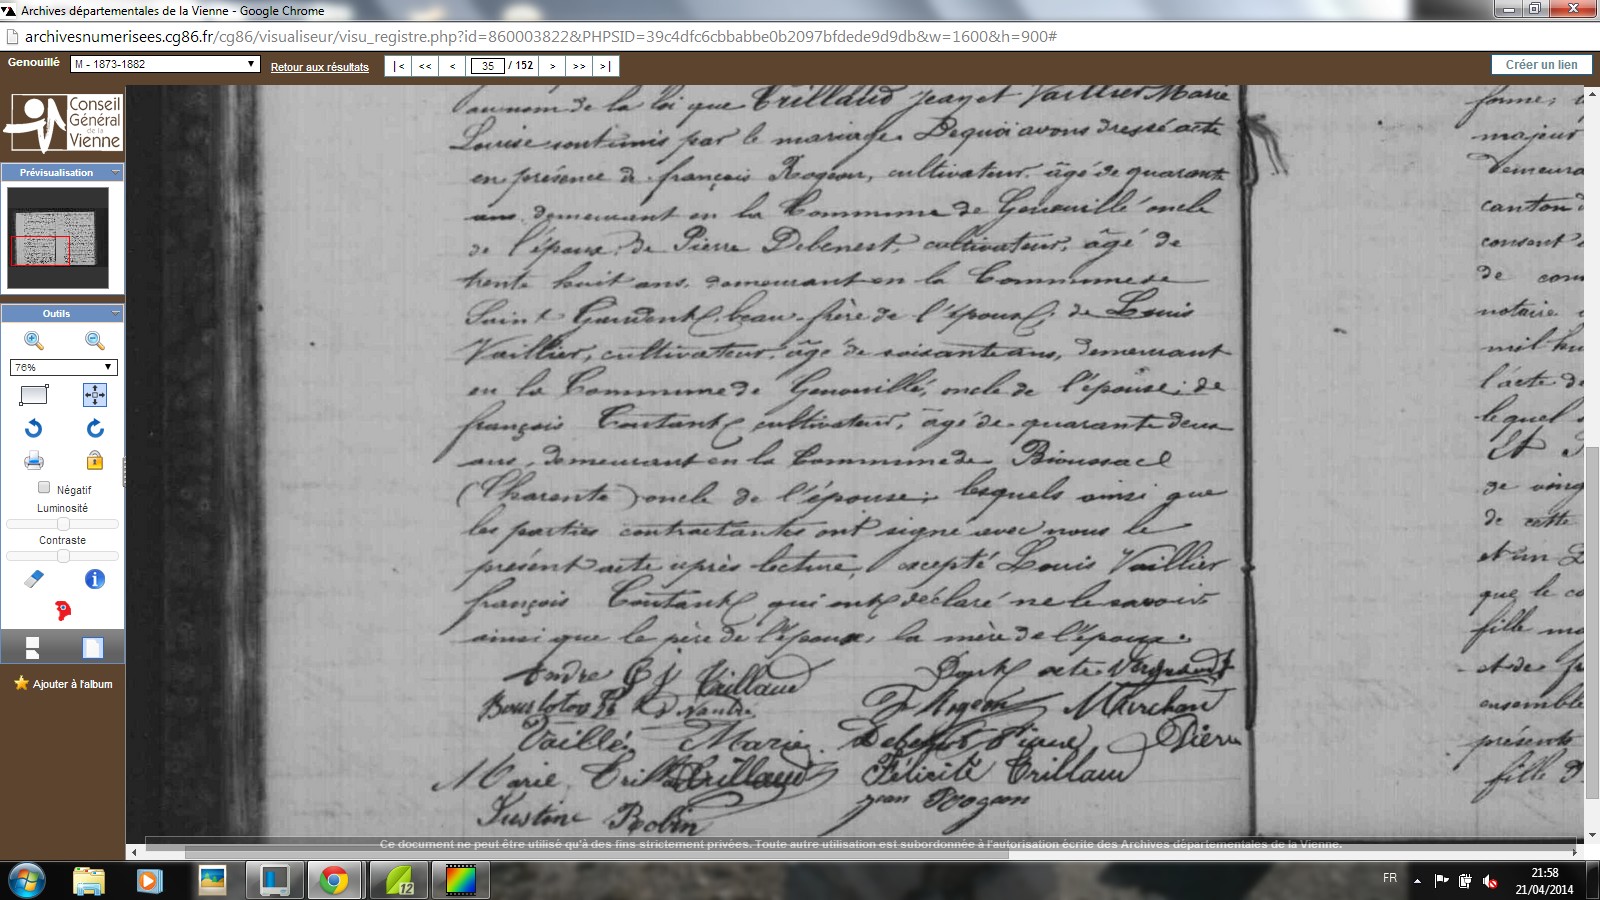 Archives départementales de la Vienne - Google Chrome
archivesnumerisees.cg86.fr/cg86/visualiseur/visu_registre.php?id=860003822&PHPSID=39c4dfc6cbbabbe0b2097bfdede9d9db&w=1600&h=900#
Genouillé M - 1873-1882 Retour aux résultats |< << < 35 / 152 > >> >| Créer un lien
Conseil Général de la Vienne
Prévisualisation
Outils
76%
Négatif
Luminosité
Contraste
Ajouter à l'album
au nom de la loi que Trillaud Jean et Vaillier Marie
Louise sont unis par le mariage. De quoi avons dressé acte
en présence de françois Rogeon, cultivateur, âgé de quarante
ans, demeurant en la Commune de Genouillé oncle
de l'époux, de Pierre Debenest, cultivateur, âgé de
trente huit ans, demeurant en la Commune de
Saint Gaudent, beau-frère de l'époux, de Louis
Vaillier, cultivateur, âgé de soixante ans, demeurant
en la Commune de Genouillé, oncle de l'épouse; de
françois Coutant cultivateur, âgé de quarante deux
ans, demeurant en la Commune de Bioussac
(Charente) oncle de l'épouse; lesquels ainsi que
les parties contractantes ont signé avec nous le
présent acte après lecture, excepté Louis Vaillier
françois Coutant qui ont déclaré ne le savoir
ainsi que le père de l'époux, la mère de l'époux.
andre Trillaud Dont acte
F Rogeon Marchan
Vaillé Marie Debenest Pierre Pierre
Marie Trillaud Félicité Trillaud
Justine Robin jean Rogeon
forme,
majeur
demeura
canton d
consent
de con
notaire
mil hu
l'acte de
lequel
Et
de ving
de cette
et un D
que le co
fille ma
et de f
ensemble
présents
fille D
Ce document ne peut être utilisé qu'à des fins strictement privées. Toute autre utilisation est subordonnée à l'autorisation écrite des Archives départementales de la Vienne.
12
FR 21:58
21/04/2014